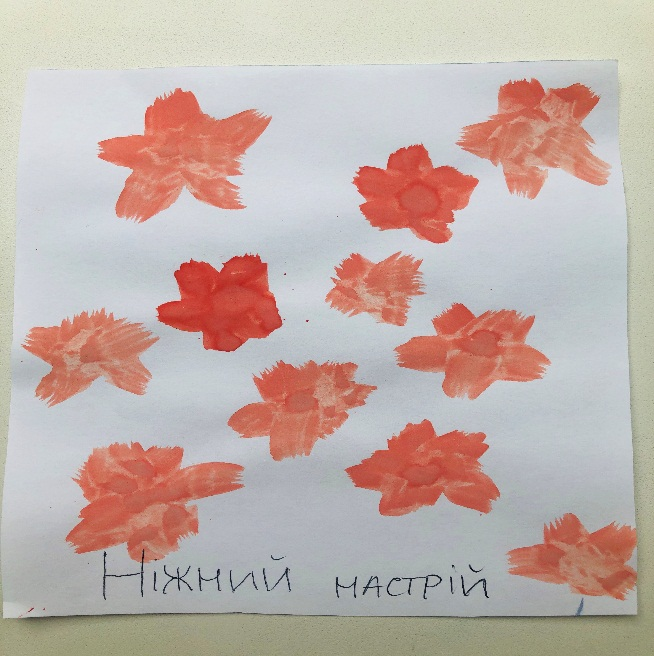 Ніжний настрій